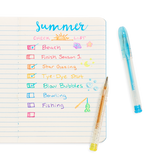 Summer
Beach
Finish Sensor 1
Star Gazing
Tye Dye Shirt
Blow Bubbles
Bowling
Fishing